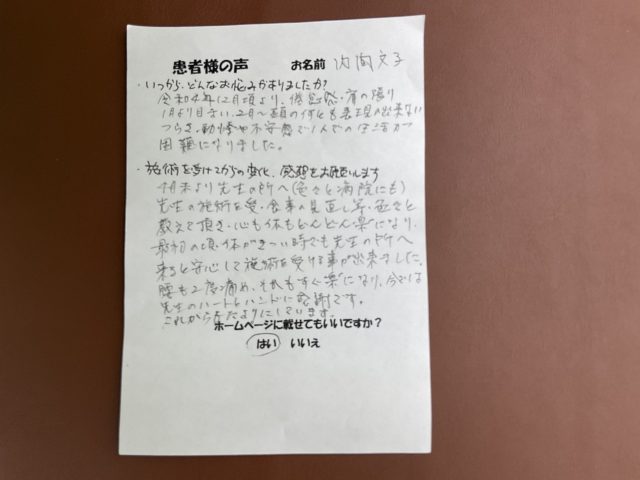 患者様の声　お名前　内向文子
・いつから、どんなお悩みがありましたか?
令和4年12月頃より、倦怠感・肩の張り
1月より目まい、2月〜頭の何とも表現出来ない
つらさ、動悸や不安感で1人での生活が
困難になりました。
・施術を受けてからの変化、感想をお願いします
4月末より先生の所へ(色々と病院にも)
先生の施術を受、食事の見直し等・色々と
教えて頂き、心も体もどんどん楽になり、
最初の頃、体がきつい時でも先生の所へ
来ると安心して施術を受ける事が出来ました。
腰も2度痛め、それもすぐ楽になり、今では
先生のハートとハンドに感謝です。
これからもたよりにしています。
ホームページに載せてもいいですか?
はい　いいえ